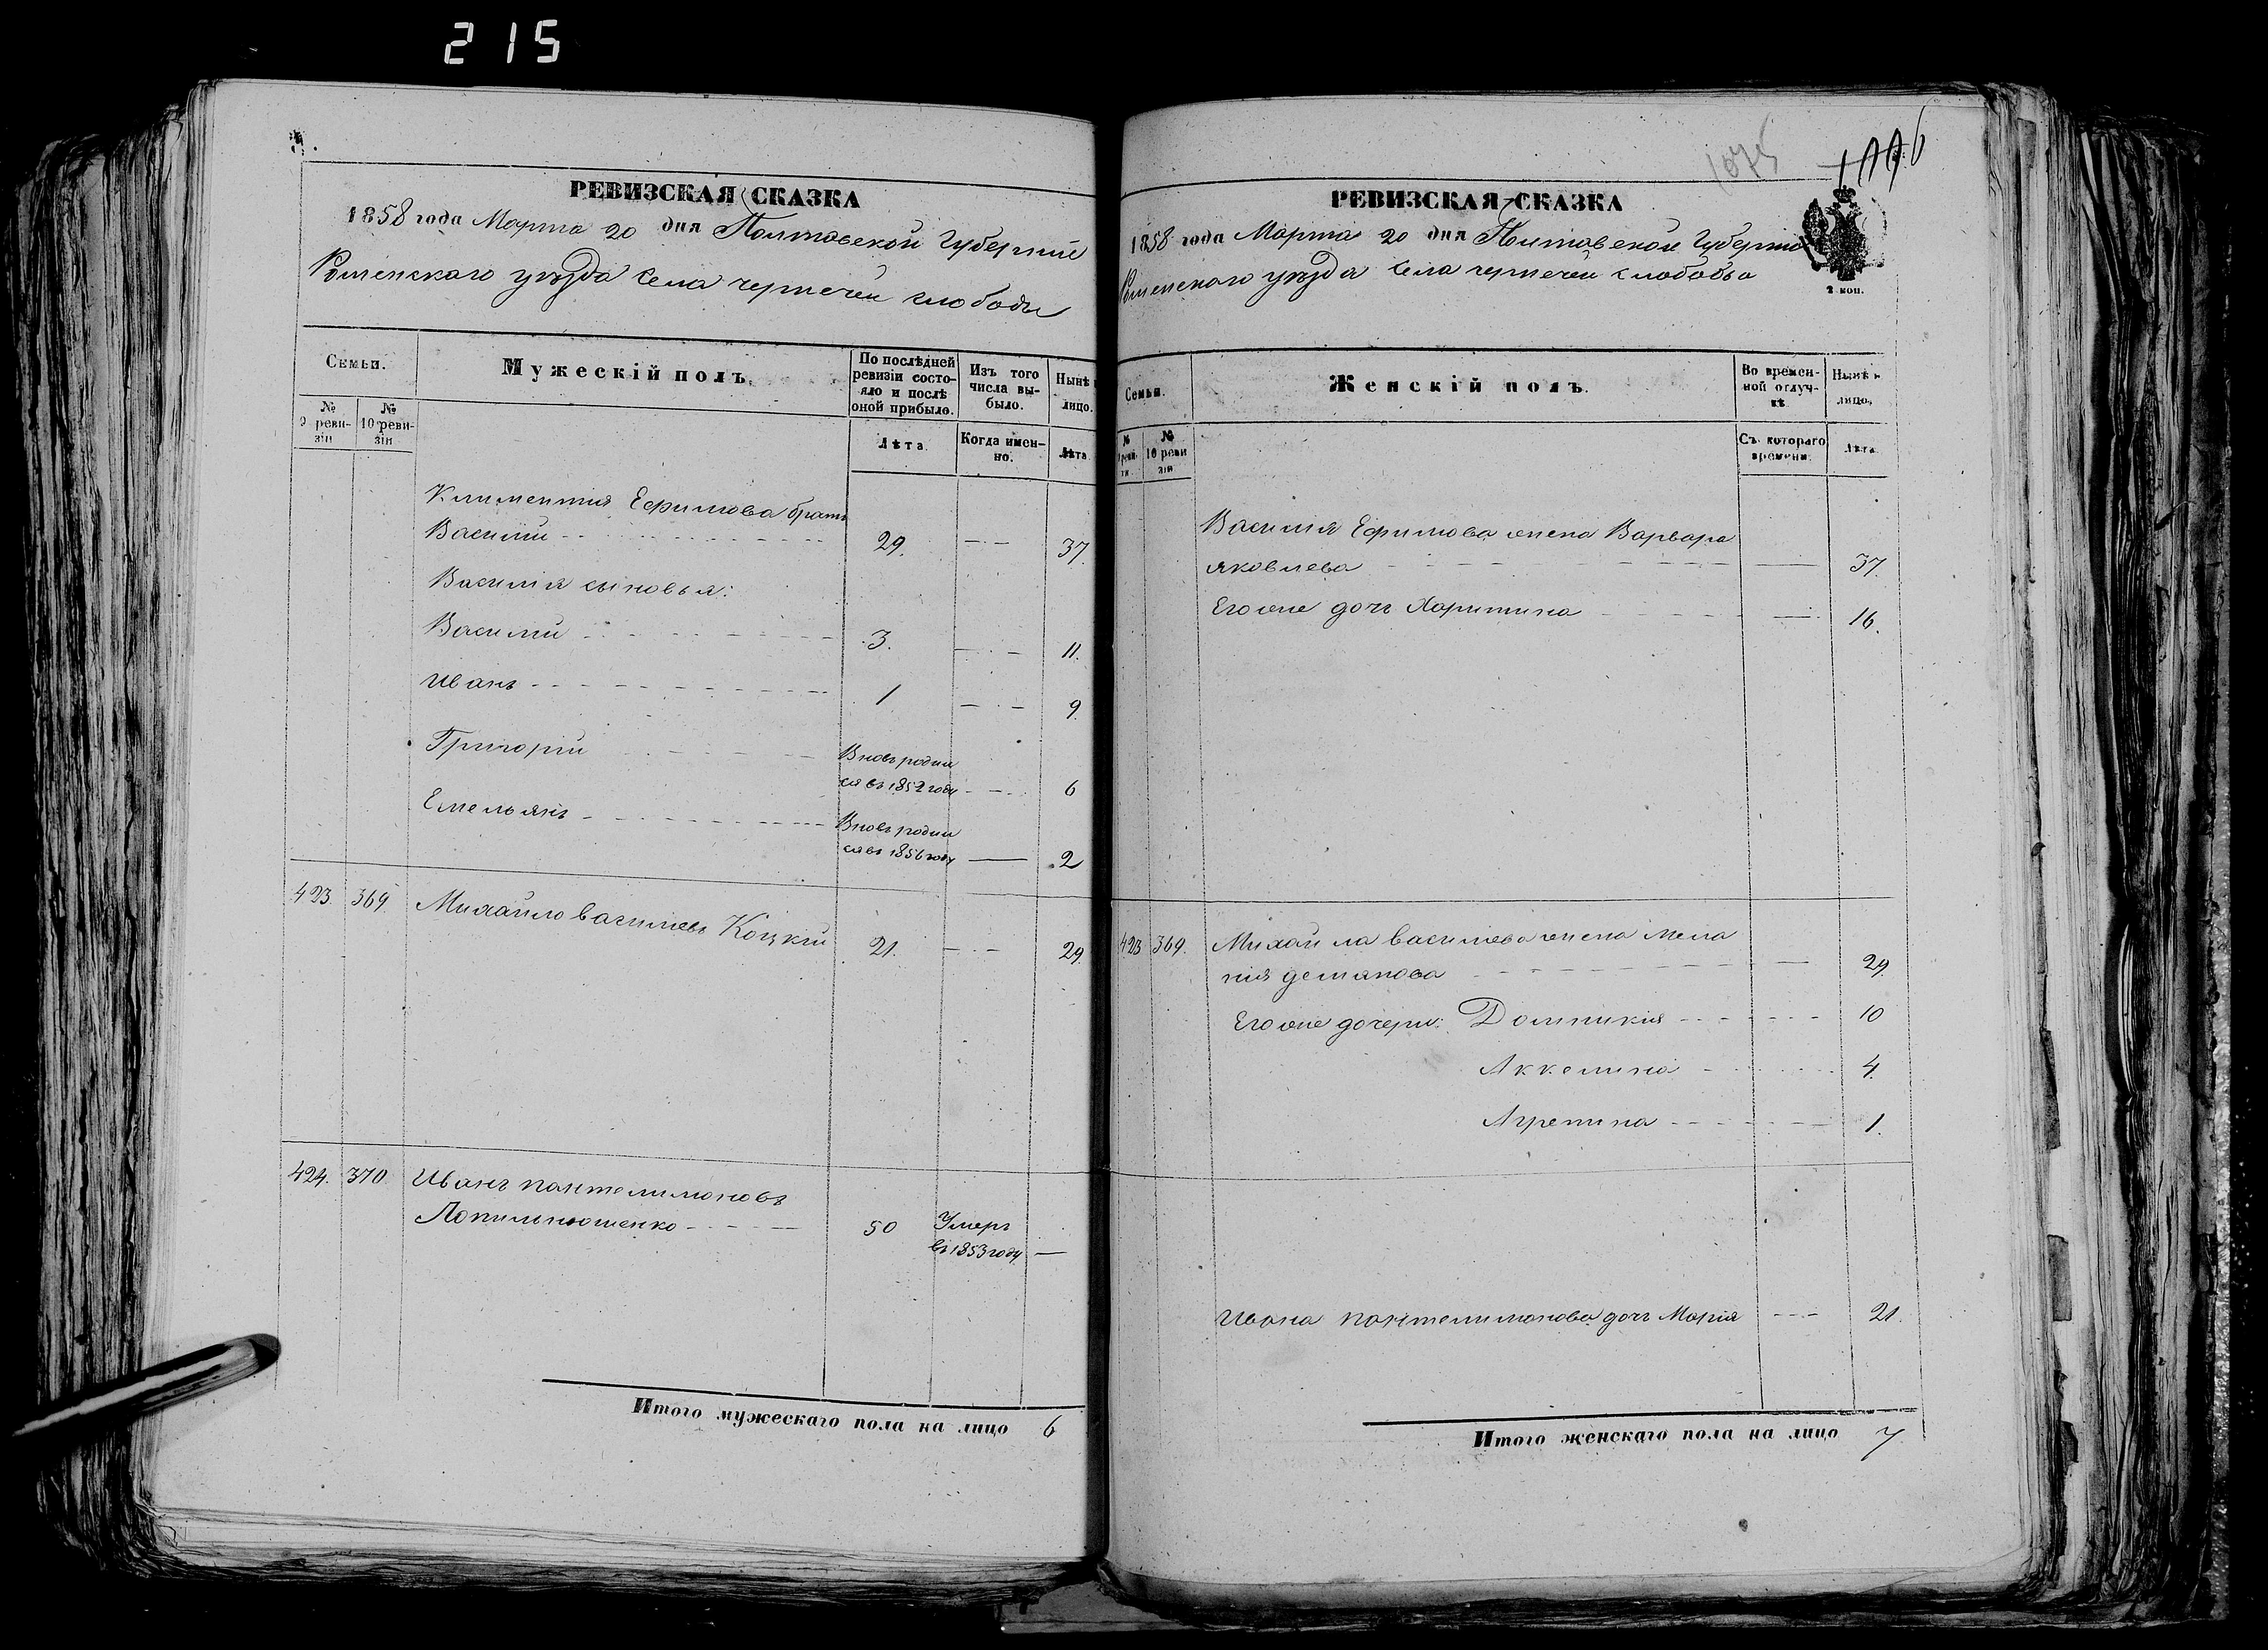 215
РЕВИЗСКАЯ СКАЗКА
1858 года Марта 20 дня Полтавской Губерніи
Роменскаго уѣзда села чернечей слободы
Семьи.
Мужескій полъ.
По послѣдней ревизіи состояло и послѣ оной прибыло.
Изъ того числа выбыло.
Нынѣ
лицо.
№ 9 ревизіи
№ 10 ревизіи
Лѣта.
Когда именно.
Лѣта
Климентия Ефимова братъ
Василій 29. 37.
Василія сыновья:
Василій 3. 11.
Иванъ 1 9.
Григорій Вновь родил
ся въ 1852 году 6
Емельянъ Вновь родил
ся въ 1856 году 2
423. 369. Михайло василіевъ Коцкій 21. 29.
424. 370 Иванъ пантелимоновъ
Лопильнюшенко 50 Умеръ
въ 1853 году
Итого мужескаго пола на лицо 6
1075
РЕВИЗСКАЯ СКАЗКА
1858 года Марта 20 дня Полтавской Губерніи
Роменскаго уѣзда села чернечей слободы
2 коп.
Семьи.
Женскій полъ.
Во временной отлучкѣ
Нынѣ н
лицо.
№ ревизіи
№ 10 ревизіи
Съ котораго времени.
Лѣта.
Василия Ефимова жена Варвара
яковлева 37.
Его же дочь Харитина 16.
423 369. Михайла василиева жена Мела
ния демянова 29.
Его же дочери: Домникия 10
Аккелина 4.
Агрепина 1.
Ивана пантелимонова дочь Марія 21.
Итого женскаго пола на лицо 7